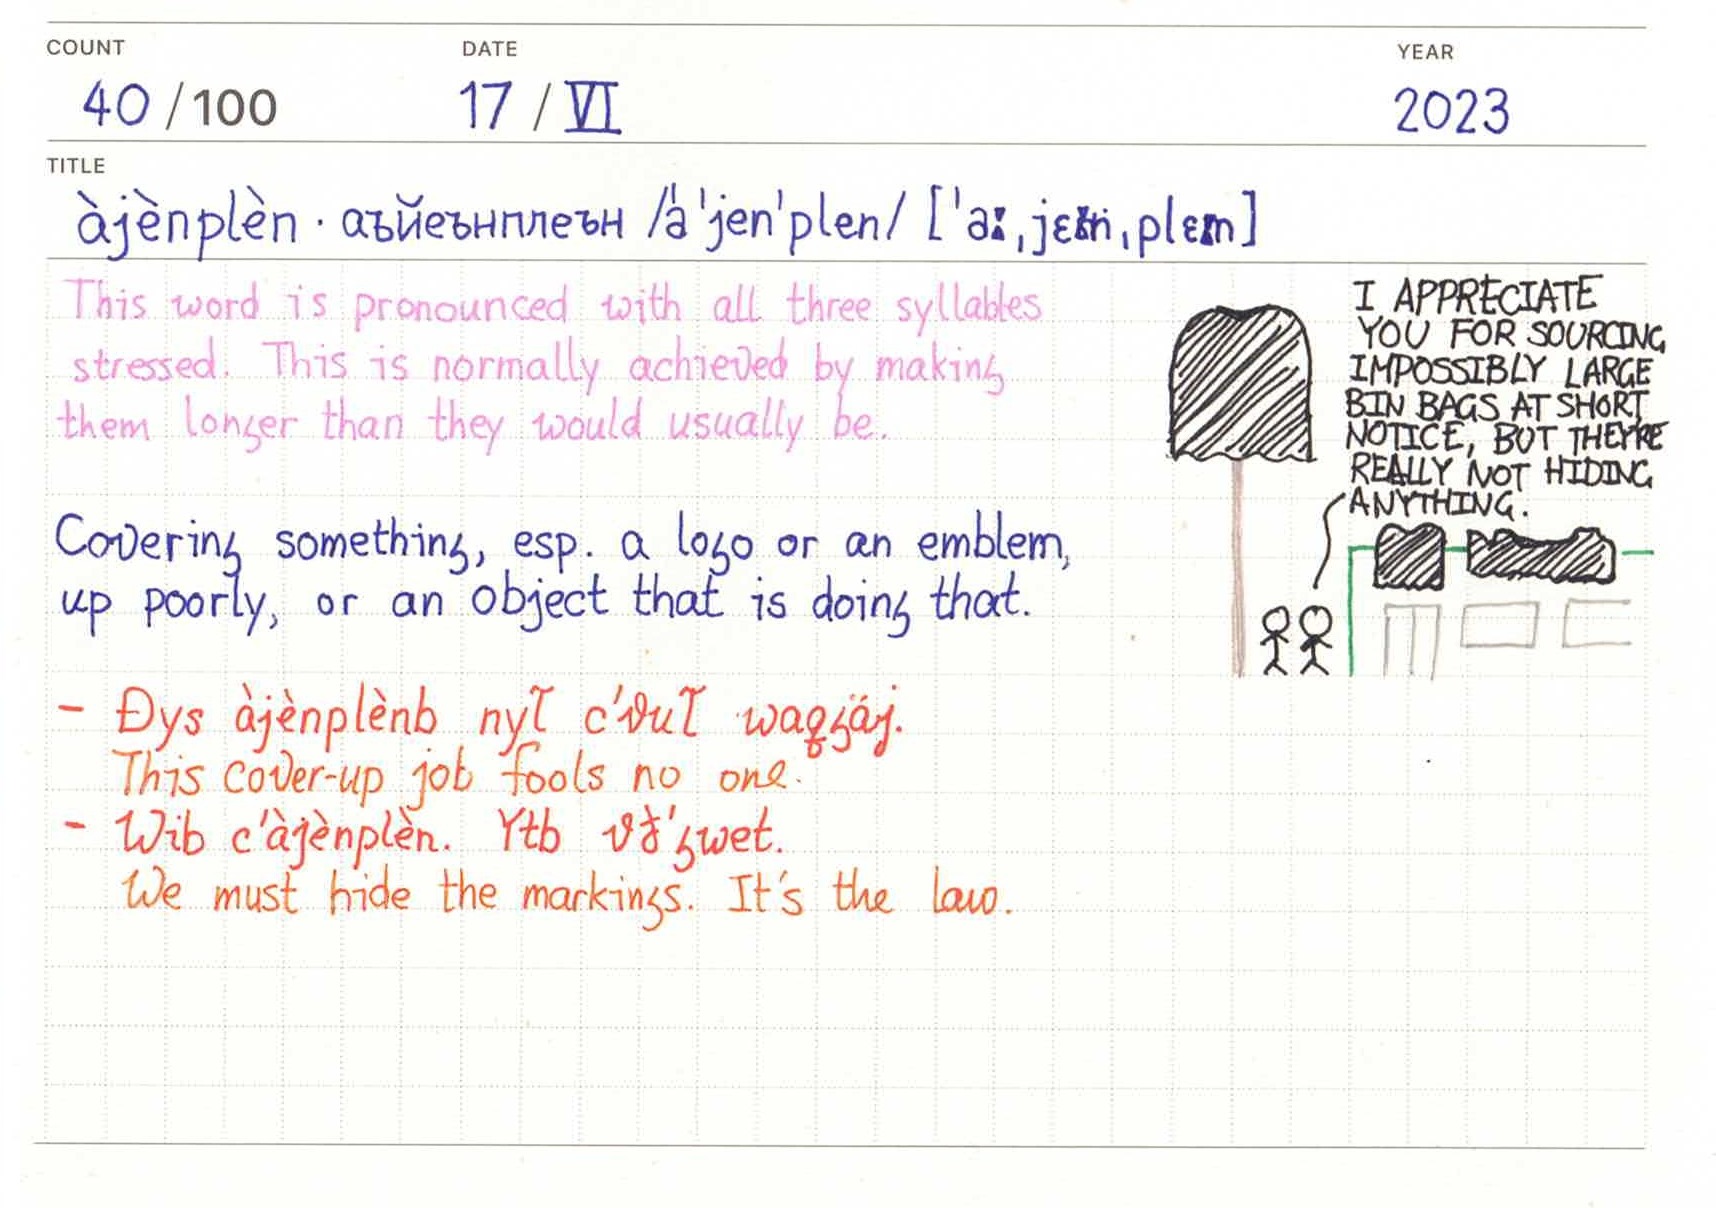 COUNT
DATE
YEAR
40 / 100
17 / VI
2023
TITLE
àjènplèn · аъйеънплеън /ˈa ˈjen ˈplen/
This word is pronounced with all three syllables
stressed. This is normally achieved by making
them longer than they would usually be.
Covering something, esp. a logo or an emblem,
up poorly, or an object that is doing that.
- Đys àjènplènb
This cover-up job fools no one.
- Wib c'àjènplèn. Ytb
We must hide the markings. It's the law.
I APPRECIATE
YOU FOR SOURCING
IMPOSSIBLY LARGE
BIN BAGS AT SHORT
NOTICE, BUT THEY'RE
REALLY NOT HIDING
ANYTHING.